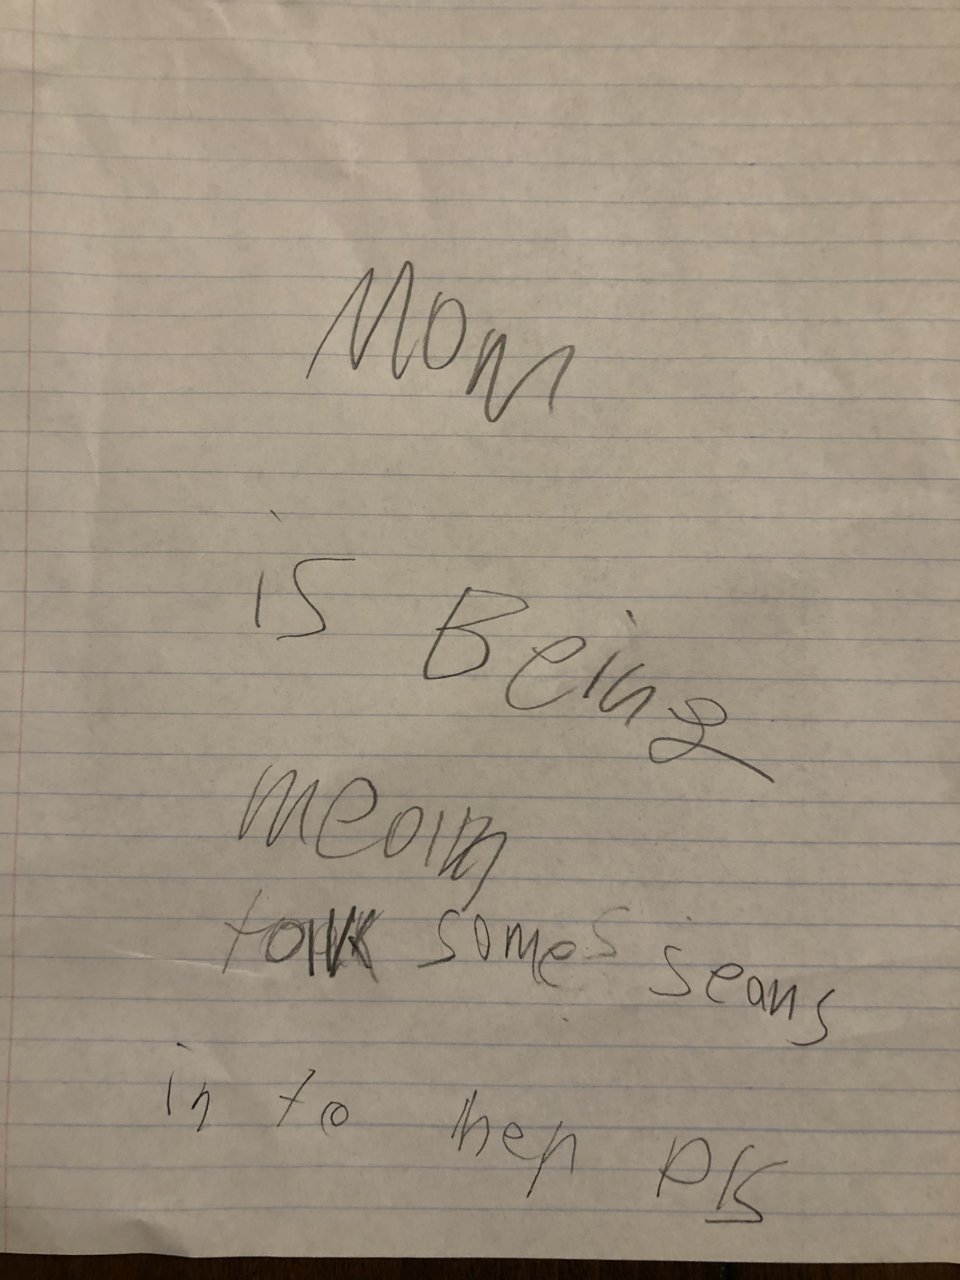 Mom
is Being
mean
talk some seans
in to her pls